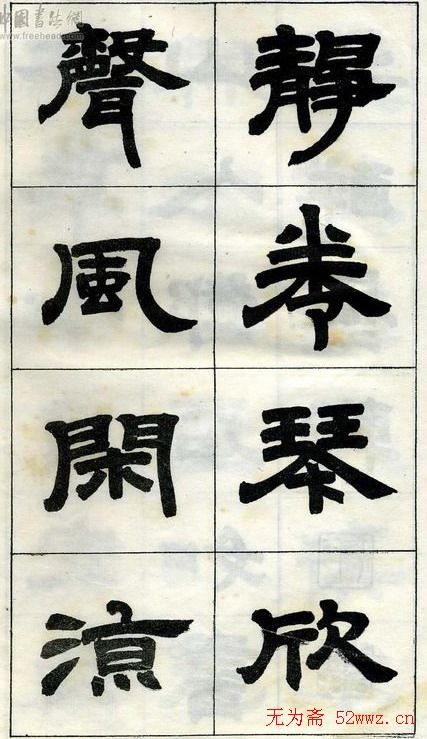 中國書法網
www.freehead.com
靜卷琴欣
聲風閑涼
无为斋 52wwz.cn